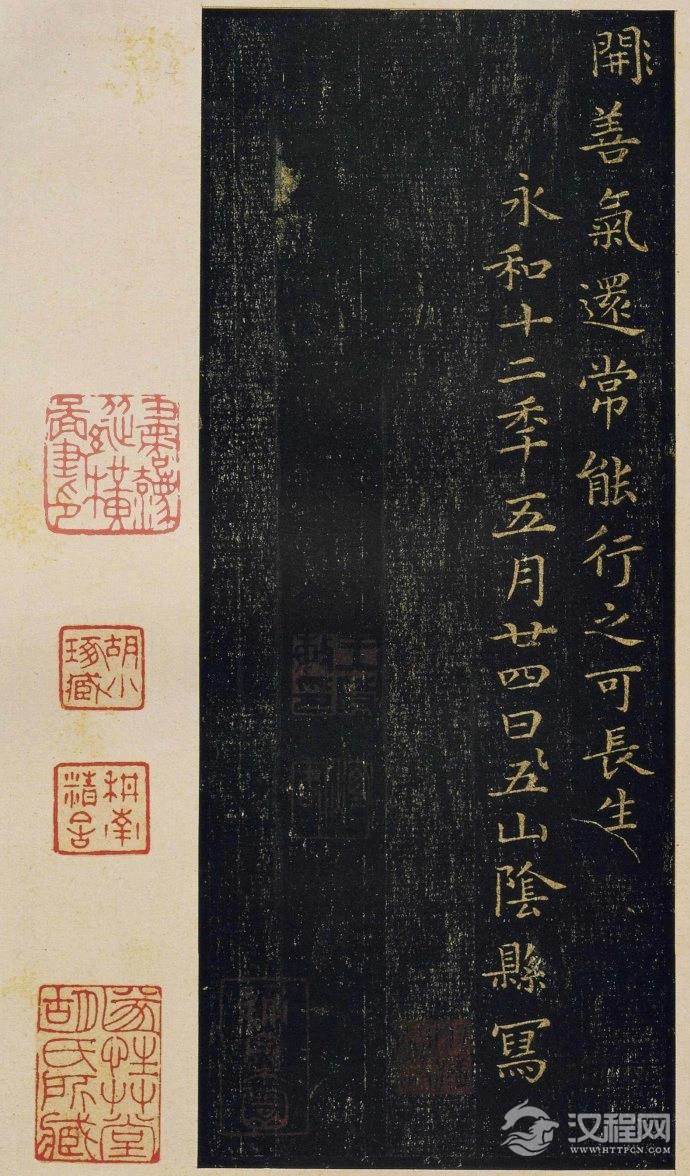 開善氣還常能行之可長生
永和十二秊五月廿四日五山陰縣寫
胡小
琢臧
胡氏所臧
汉程网
WWW.HTTPCN.COM